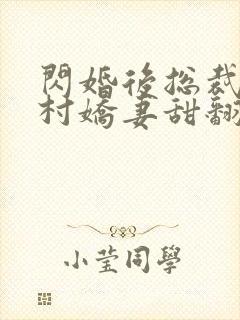 閃婚後總裁
村嬌妻甜翻
小莹同學